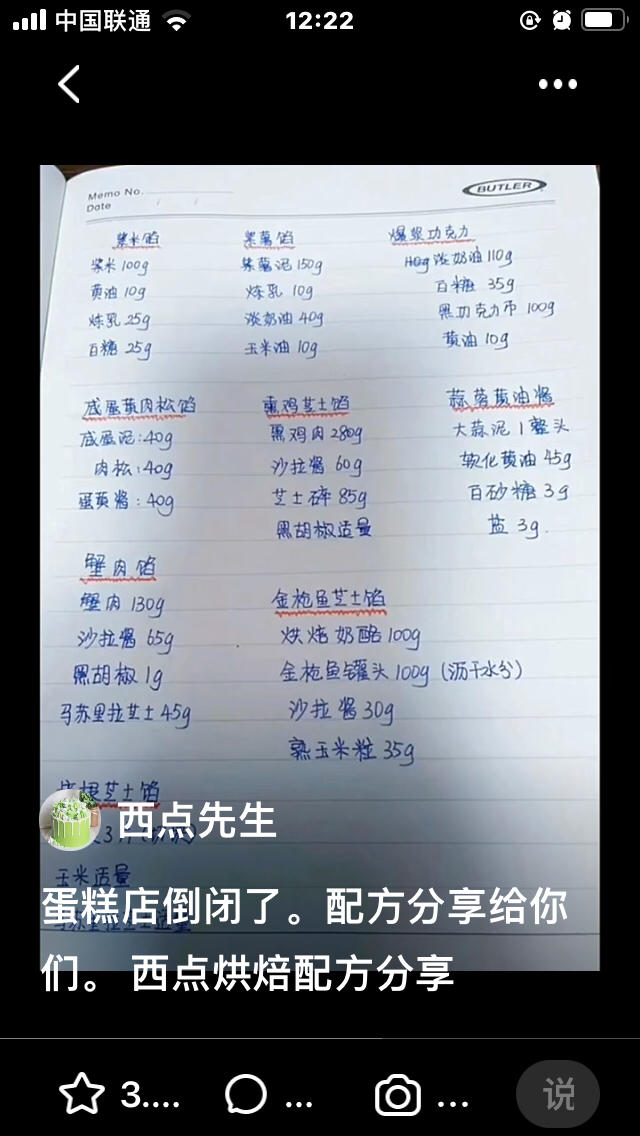 中国联通
12:22
Memo No.
Date
BUTLER
紫米馅
紫米100g
黄油10g
炼乳25g
白糖25g
紫薯馅
紫薯泥150g
炼乳10g
淡奶油40g
玉米油10g
爆浆巧克力
淡奶油110g
白糖35g
黑巧克力币100g
黄油10g
咸蛋黄肉松馅
咸蛋泥:40g
肉松:40g
蛋黄酱:40g
熏鸡芝士馅
熏鸡肉280g
沙拉酱60g
芝士碎85g
黑胡椒适量
蒜蓉黄油酱
大蒜泥1整头
软化黄油45g
白砂糖3g
盐3g.
蟹肉馅
蟹肉130g
沙拉酱65g
黑胡椒1g
马苏里拉芝士45g
金枪鱼芝士馅
烘焙奶酪100g
金枪鱼罐头100g(沥干水分)
沙拉酱30g
熟玉米粒35g
培根芝士馅
玉米适量
西点先生
蛋糕店倒闭了。配方分享给你
们。 西点烘焙配方分享
3....
...
...
说